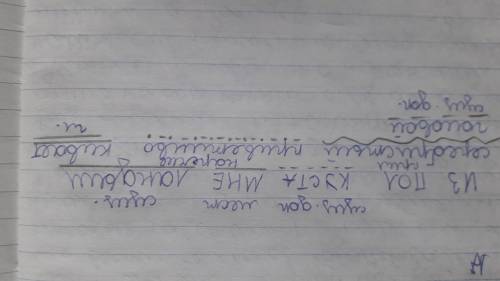 сущ. доп мест сущ.
ИЗ ПОД КУСТА МНЕ ЛАНДЫШ
прил наречие
серебристый приветливо кивает
головой гл.
сущ. доп.